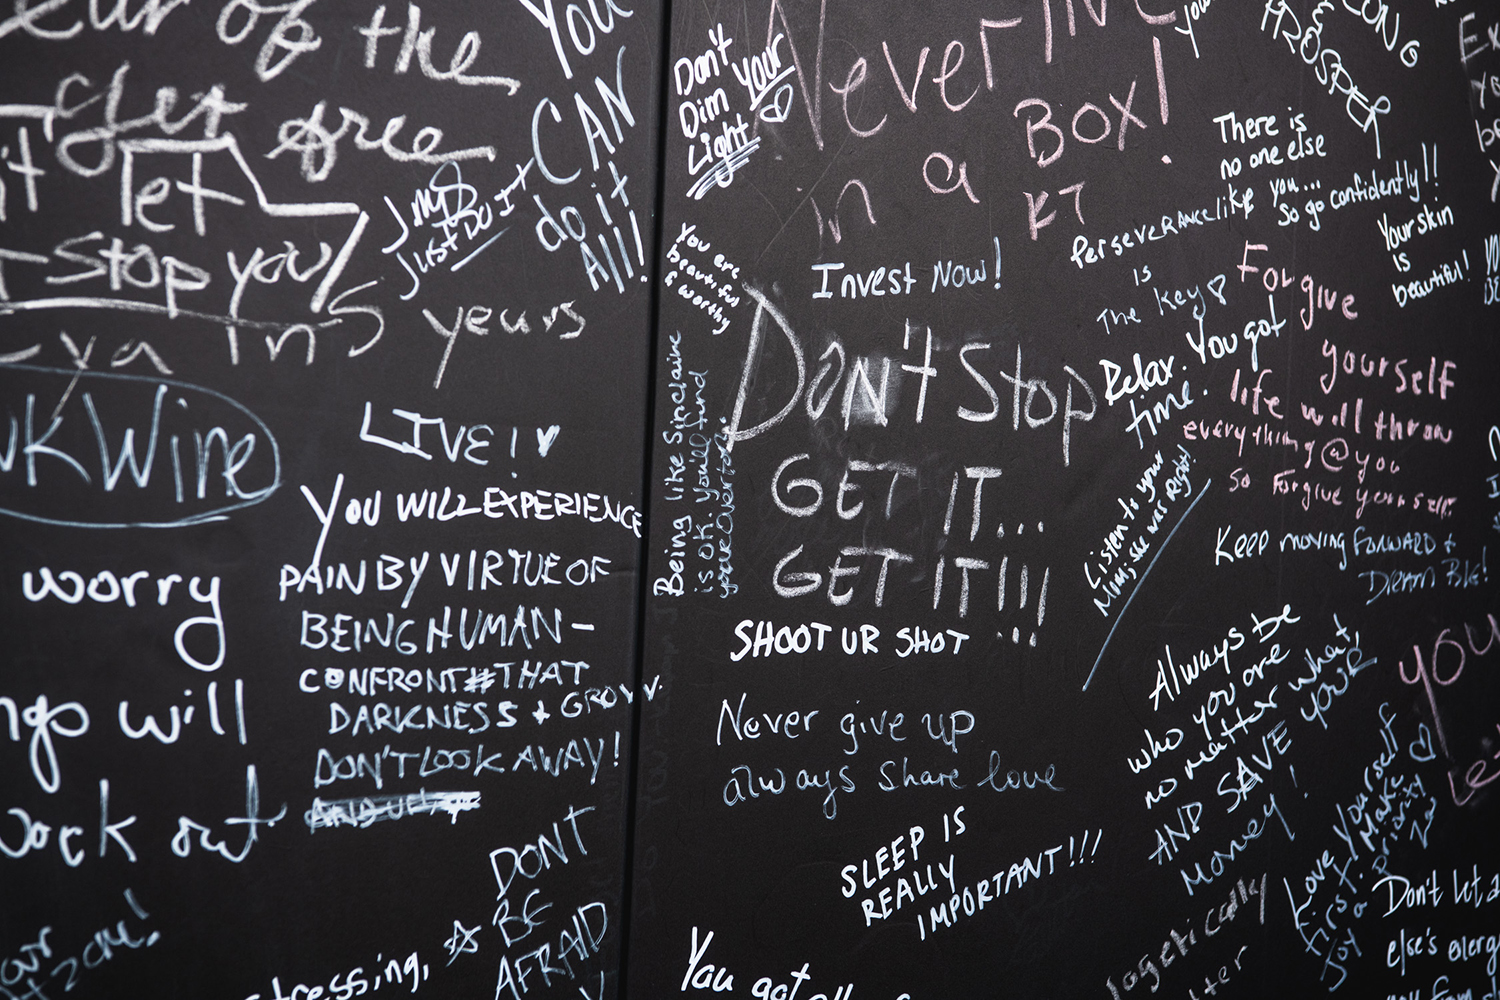 of the
get free
let
stop you
in 5 years
You
CAN
do it
All!
JUST DO IT
Wire
LIVE!
YOU WILL EXPERIENCE
PAIN BY VIRTUE OF
BEING HUMAN -
CONFRONT THAT
DARKNESS + GROW.
DON'T LOOK AWAY!
worry
will
work out
DONT
BE
AFRAID
stressing,
Don't
Dim your
Light
Never
in a
BOX!
KT
You are
beautiful
& worthy
Invest Now!
Don't Stop
GET IT...
GET IT!!!
Being like Sinclaire
is ok. You'll find
your Overton.
SHOOT UR SHOT
Never give up
always share love
SLEEP IS
REALLY
IMPORTANT!!!
You got
PROSPER
There is
no one else
like you...
So go confidently!!
Perseverance
is
The key
Your skin
is
beautiful!
Relax. You got
time.
Forgive
yourself
life will throw
everything @ you
So Forgive yourself.
Listen to your
Mum; she was Right!
Keep moving forward +
Dream Big!
Always be
who you are
no matter what,
AND SAVE YOUR
Money!
YOU
Love Yourself
first. Make
Joy a Priority
Don't let
else's